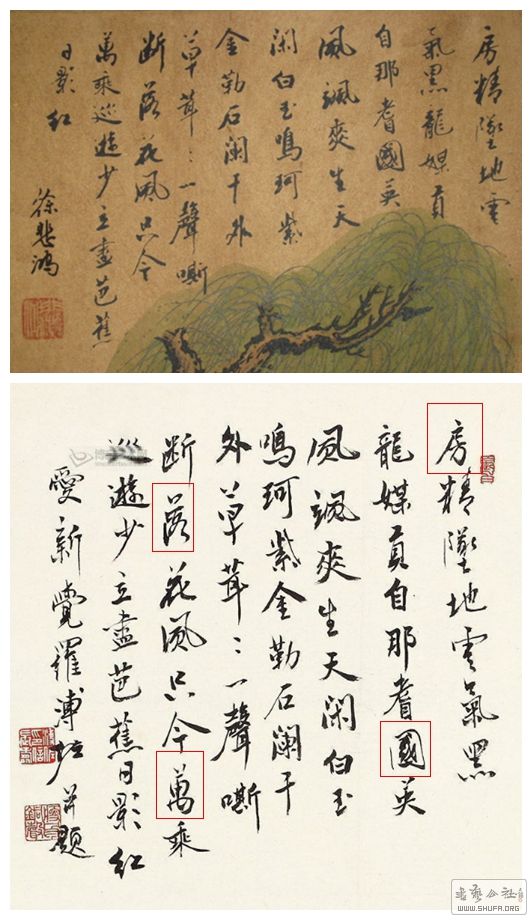 房精墜地雲
氣黑龍媒真
自那耆國英
風颯爽生天
閑白玉鳴珂紫
金勒石闌干外
草茸〻一聲嘶
断落花風只今
萬乘巡遊少立盡芭蕉
日影紅
徐悲鴻
房精墜地雲氣黑
龍媒真自那耆國英
風颯爽生天閑白玉
鳴珂紫金勒石闌干
外草茸〻一聲嘶
断落花風只今萬乘
巡遊少立盡芭蕉日影紅
愛新覺羅溥佐並題
书艺公社
WWW.SHUFA.ORG